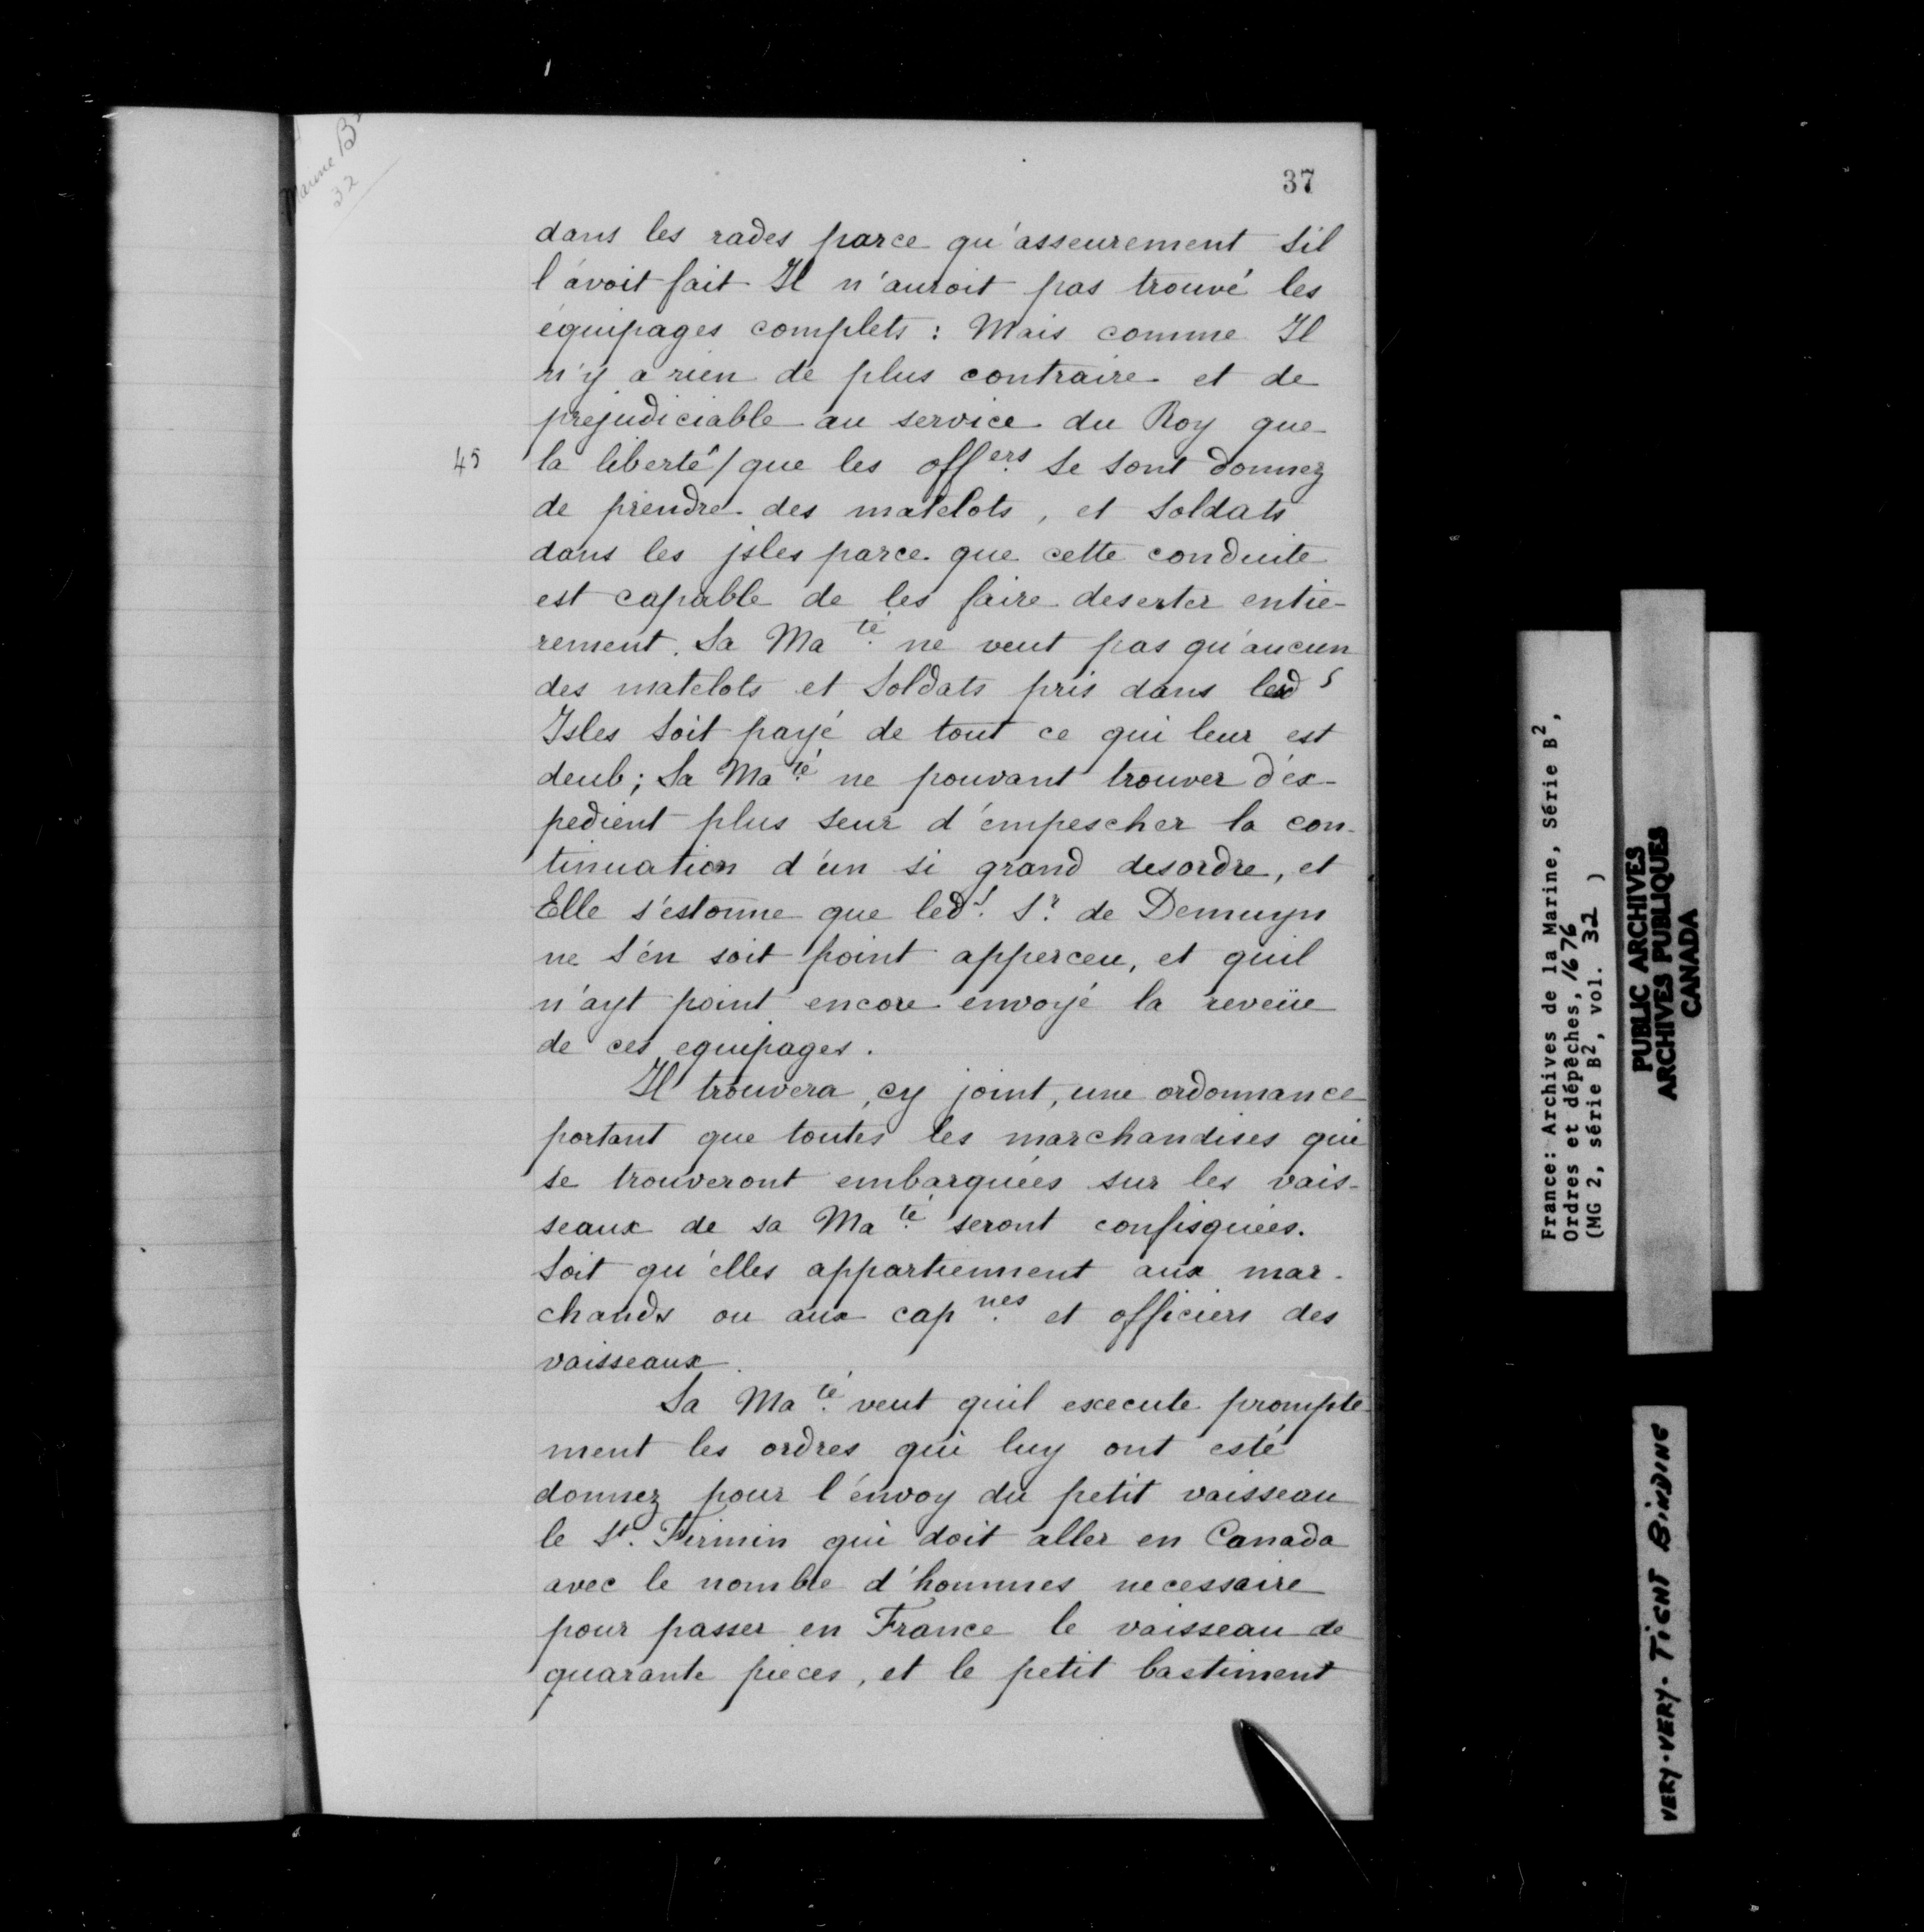 Marine B²
32
37
dans les rades parce qu'asseurement s'il
l'avoit fait Il n'auroit pas trouvé les
équipages complets : Mais comme Il
n'y a rien de plus contraire et de
prejudiciable au service du Roy que
45 la liberté / que les off.ers se sont donnez
de prendre des matelots, et soldats
dans les jsles parce que cette conduite
est capable de les faire deserter entie-
rement. Sa Ma.té ne veut pas qu'aucun
des matelots et soldats pris dans lesd s
Isles soit payé de tout ce qui leur est
deub; Sa Ma.té ne pouvant trouver d'ex-
pedient plus seur d'empescher la con-
tinuation d'un si grand desordre, et
Elle s'estonne que led.t S.r de Demuyn
ne s'en soit point apperceu, et quil
n'ayt point encore envoyé la reveüe
de ces equipages.
Il trouvera, cy joint, une ordonnance
portant que toutes les marchandises qui
se trouveront embarquées sur les vais-
seaux de sa Ma.té seront confisquées.
soit qu'elles appartiennent aux mar-
chands ou aux cap.nes et officiers des
vaisseaux.
Sa Ma.té veut quil execute prompte-
ment les ordres qui luy ont esté
donnez pour l'envoy du petit vaisseau
le S.t Firmin qui doit aller en Canada
avec le nombre d'hommes necessaire
pour passer en France le vaisseau de
quarante pieces, et le petit bastiment
France: Archives de la Marine, Série B²,
Ordres et dépêches, 1676
(MG 2, série B², vol. 32 )
PUBLIC ARCHIVES
ARCHIVES PUBLIQUES
CANADA
VERY-VERY-TIGHT BINDING